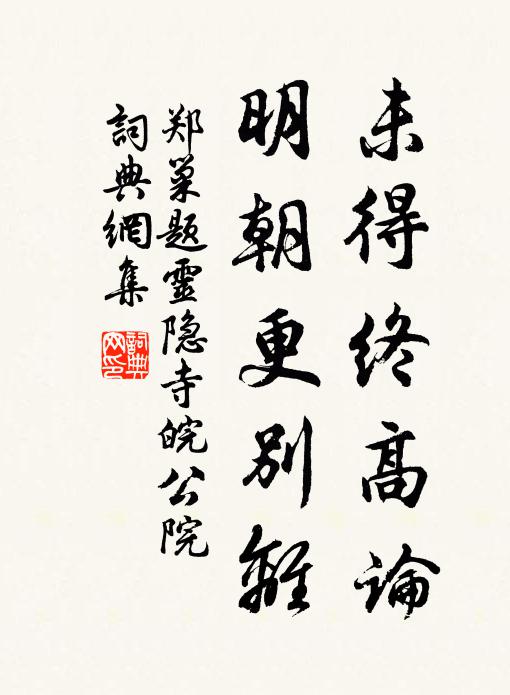 未得终高論
明朝更别離
郑巢题靈隐寺皖公院
詞典網集
詞典網印